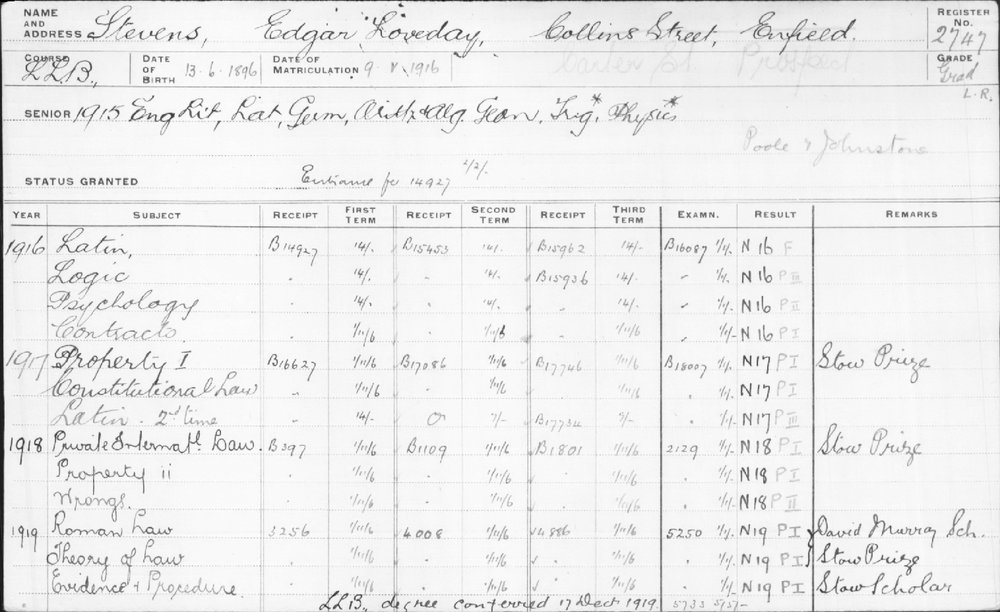 NAME AND ADDRESS Stevens, Edgar Loveday, Collins Street, Enfield. REGISTER No. 2747
Carter St. Prospect
COURSE LLB. DATE OF BIRTH 13.6.1896 DATE OF MATRICULATION 9 V 1916 GRADE Grad L.R.
SENIOR 1915 Eng Lit, Lat, Germ, Arith & Alg. Geom. Trig* Physics*
Poole & Johnstone
STATUS GRANTED Entrance fee 14927 2/2/.
YEAR SUBJECT RECEIPT FIRST TERM RECEIPT SECOND TERM RECEIPT THIRD TERM EXAMN. RESULT REMARKS
1916 Latin, B14927 14/. B15453 14/. B15962 14/. B16087 1/1/. N 16 F
Logic . 14/. . 14/. B15936 14/. . 1/1/. N 16 P III
Psychology . 14/. . 14/. . 14/. . 1/1/. N 16 P II
Contracts . 1/11/6 . 1/11/6 . 1/11/6 . 1/1/- N 16 P I
1917 Property I B16627 1/11/6 B17086 1/11/6 B17746 1/11/6 B18007 1/1/. N 17 P I Stow Prize
Constitutional Law . 1/11/6 . 1/11/6 . 1/11/6 . 1/1/. N 17 P I
Latin - 2nd time . 14/- 7/- B17734 7/- . 1/1/. N 17 P III
1918 Private Internatl. Law. B397 1/11/6 B1109 1/11/6 B1801 1/11/6 2129 1/1/. N 18 P I Stow Prize
Property ii . 1/11/6 . 1/11/6 . 1/11/6 . 1/1/. N 18 P I
Wrongs. . 1/11/6 . 1/11/6 . 1/11/6 . 1/1/. N 18 P II
1919 Roman Law 3256 1/11/6 4008 1/11/6 4886 1/11/6 5250 1/1/. N 19 P I David Murray Sch.
Theory of Law . 1/11/6 . 1/11/6 . 1/11/6 . 1/1/. N 19 P I Stow Prize
Evidence & Procedure . 1/11/6 . 1/11/6 . 1/11/6 . 1/1/. N 19 P I Stow Scholar
LLB., degree conferred 17 Dec 1919. 5733